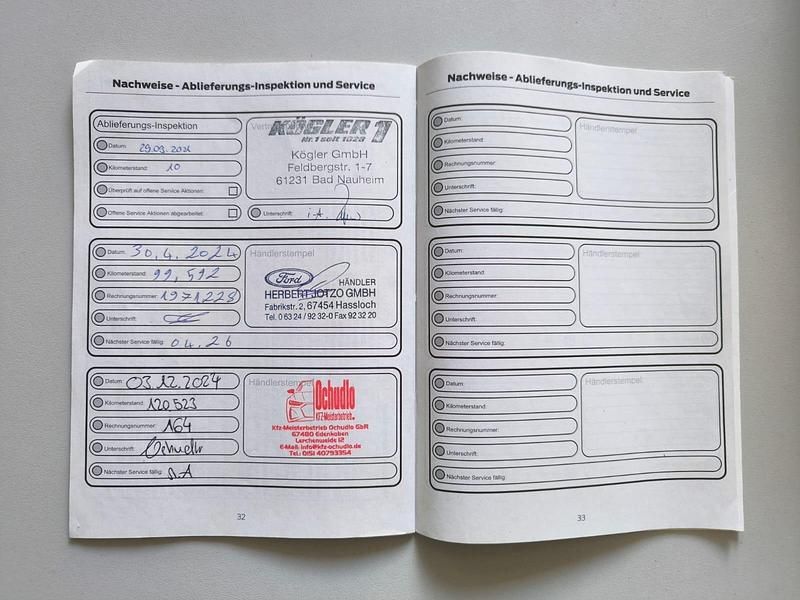 Nachweise - Ablieferungs-Inspektion und Service
Ablieferungs-Inspektion
Datum: 29.09.2021
Kilometerstand: 10
Überprüft auf offene Service Aktionen:
Offene Service Aktionen abgearbeitet:
KÖGLER
Nr. 1 seit 1928
Kögler GmbH
Feldbergstr. 1-7
61231 Bad Nauheim
Unterschrift: i.A.
Datum: 30.4.2024
Kilometerstand: 99,592
Rechnungsnummer: 1971228
Unterschrift:
Nächster Service fällig: 04.26
Händlerstempel
Ford
HÄNDLER
HERBERT JOTZO GMBH
Fabrikstr. 2, 67454 Hassloch
Tel. 0 63 24 / 92 32-0 Fax 92 32 20
Datum: 03.12.2024
Kilometerstand: 120.523
Rechnungsnummer: 164
Unterschrift:
Nächster Service fällig:
Händlerstempel
Ochudlo
KFZ-Meisterbetrieb
Kfz-Meisterbetrieb Ochudlo GbR
67480 Edenkoben
Lerchenweide 12
E-Mail: info@kfz-ochudlo.de
Tel.: 0151 40793354
32
Nachweise - Ablieferungs-Inspektion und Service
Datum:
Kilometerstand:
Rechnungsnummer:
Unterschrift:
Nächster Service fällig:
Händlerstempel
Datum:
Kilometerstand:
Rechnungsnummer:
Unterschrift:
Nächster Service fällig:
Händlerstempel
Datum:
Kilometerstand:
Rechnungsnummer:
Unterschrift:
Nächster Service fällig:
Händlerstempel
33